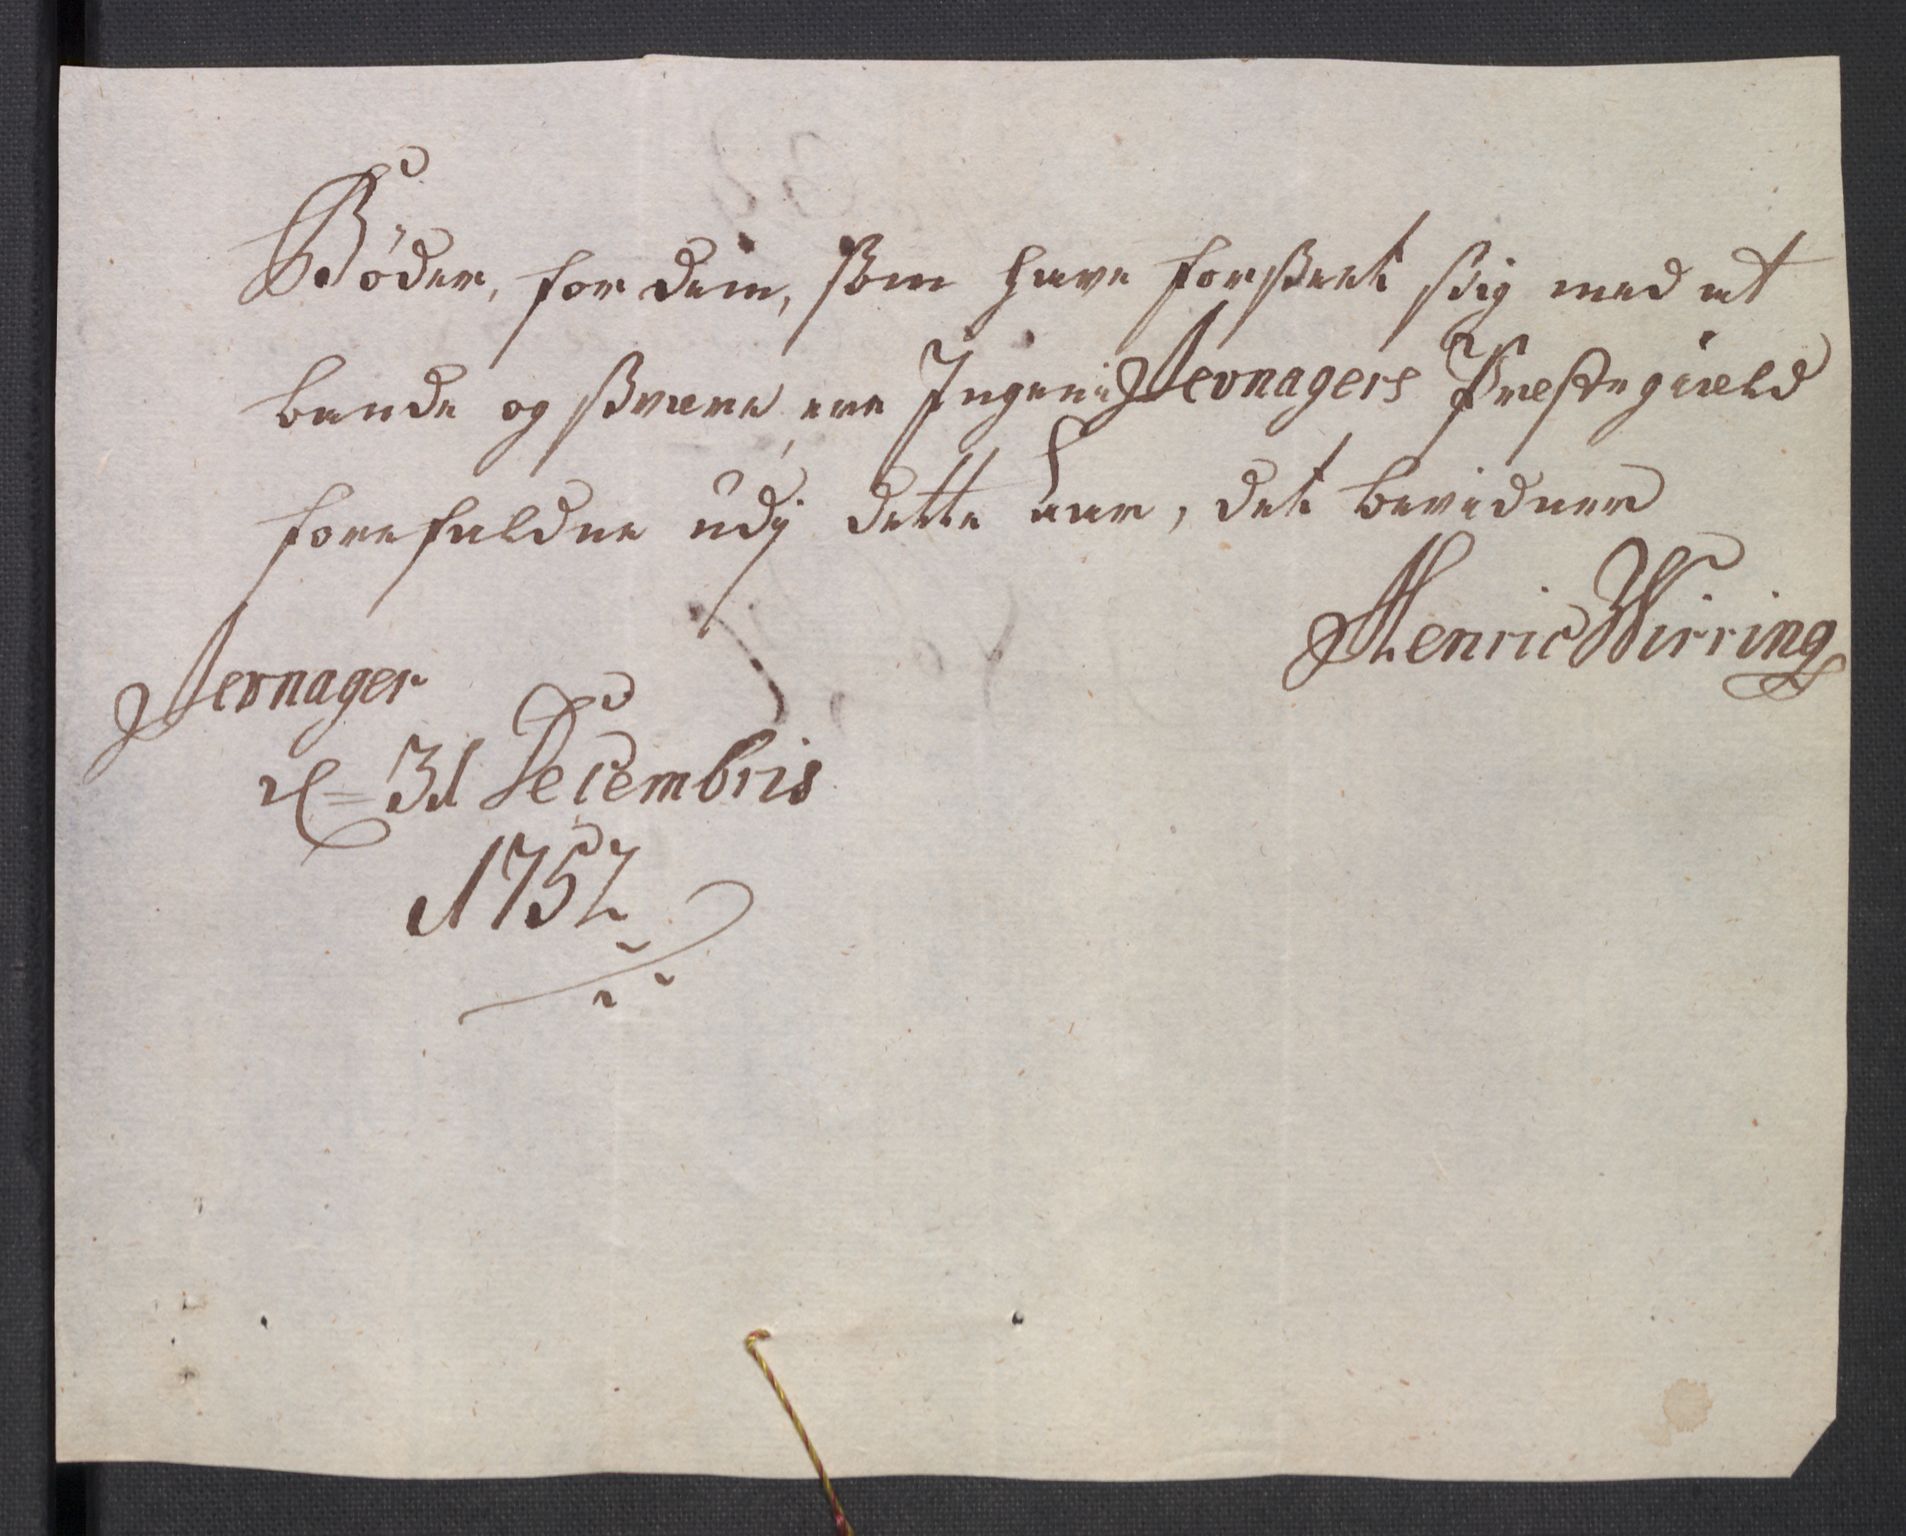 Bøder, for dem, som have forseet sig med at
bande og sværre ere Ingen i Jevnagers Præstegiæld
forefaldne udj dette Aar, det bevidner
Henric Wirring
Jevnager
d 31 Decembris
1752